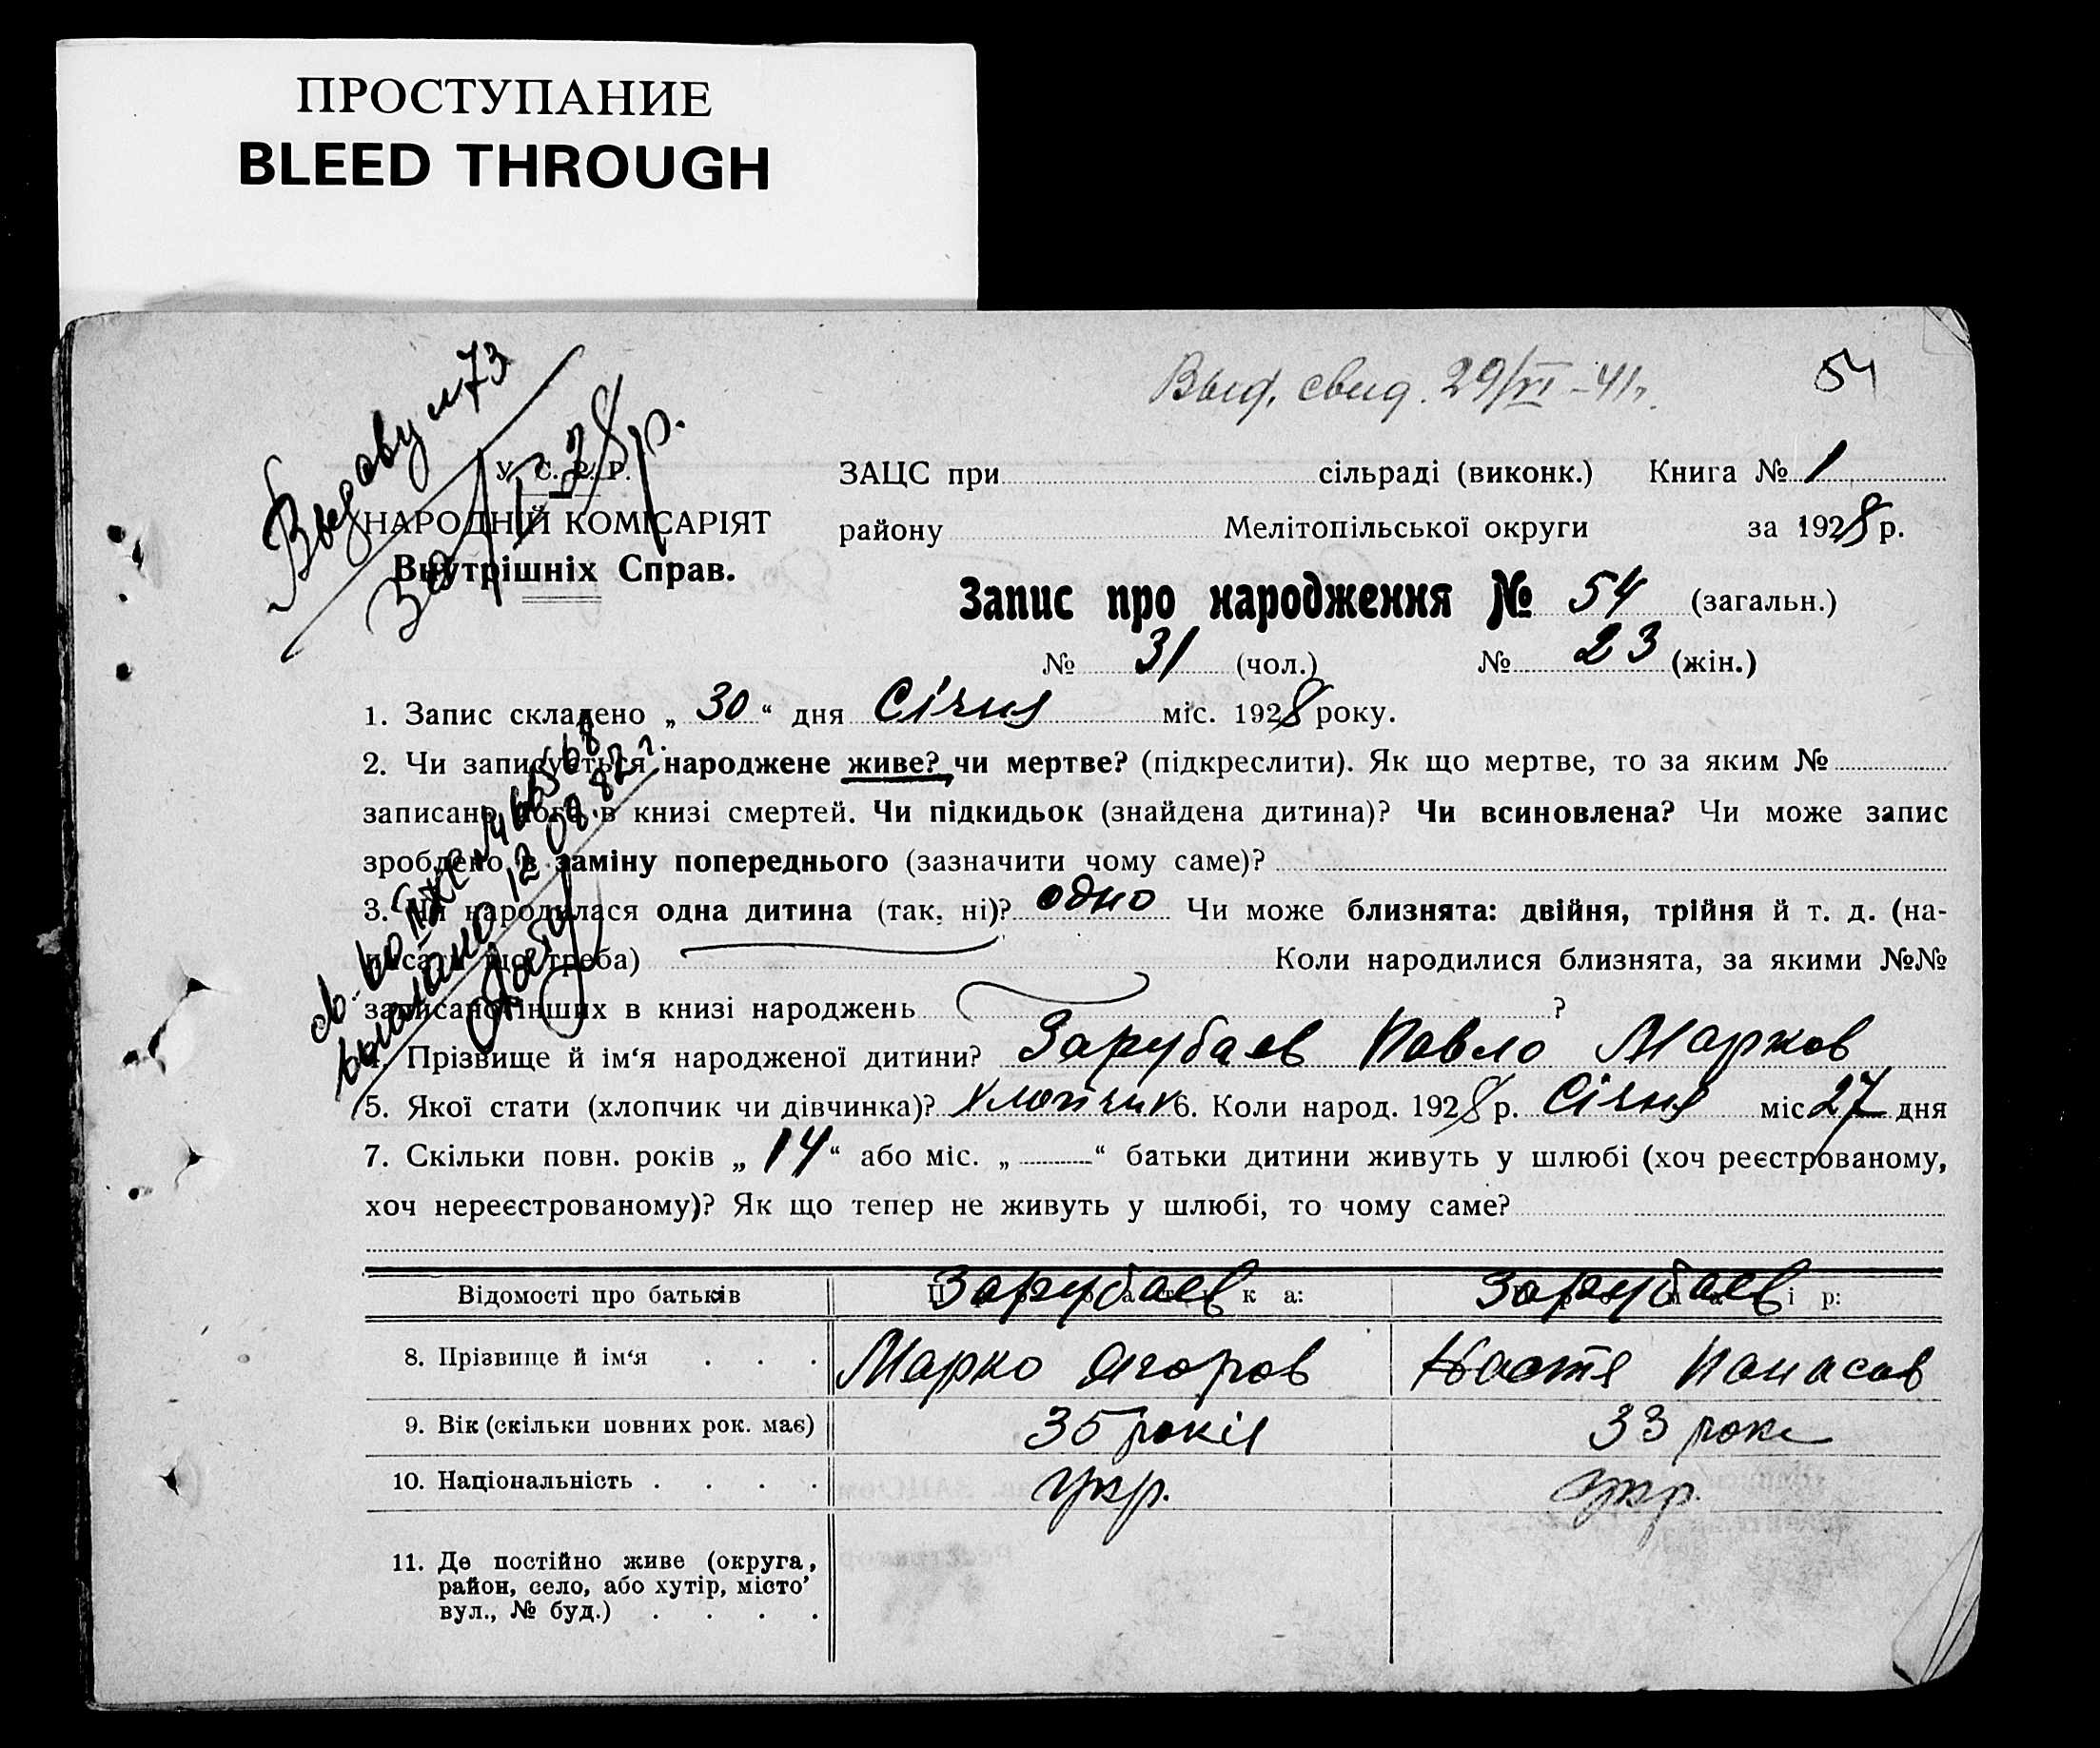 ПРОСТУПАНИЕ
BLEED THROUGH
Выд. свид. 29/VI - 41г.
54
У. С. Р. Р.
НАРОДНІЙ КОМІСАРІЯТ
Внутрішніх Справ.
ЗАЦС при сільраді (виконк.) Книга № 1
району Мелітопільської округи за 1928 р.
Запис про народження № 54 (загальн.)
№ 31 (чол.) № 23 (жін.)
1. Запис складено „ 30 “ дня Січня міс. 1928 року.
2. Чи записується народжене живе? чи мертве? (підкреслити). Як що мертве, то за яким №
записано його в книзі смертей. Чи підкидьок (знайдена дитина)? Чи всиновлена? Чи може запис
зроблено в заміну попереднього (зазначити чому саме)?
3. Чи народилася одна дитина (так, ні)? одно Чи може близнята: двійня, трійня й т. д. (на-
писати що треба) Коли народилися близнята, за якими №№
записано інших в книзі народжень ?
4. Прізвище й ім‘я народженої дитини? Зарубаев Павло Марков
5. Якої стати (хлопчик чи дівчинка)? Хлопчик 6. Коли народ. 1928 р. Січня міс 27 дня
7. Скільки повн. років „ 14 “ або міс. „ “ батьки дитини живуть у шлюбі (хоч реєстрованому,
хоч нереєстрованому)? Як що тепер не живуть у шлюбі, то чому саме?
Відомості про батьків
Зарубаев
Зарубаев
8. Прізвище й ім‘я . . . Марко Ягоров Настя Панасов
9. Вік (скільки повних рок. має) 35 років 33 роки
10. Національність . . . . укр. укр.
11. Де постійно живе (округа,
район, село, або хутір, місто,
вул., № буд.) . . . .